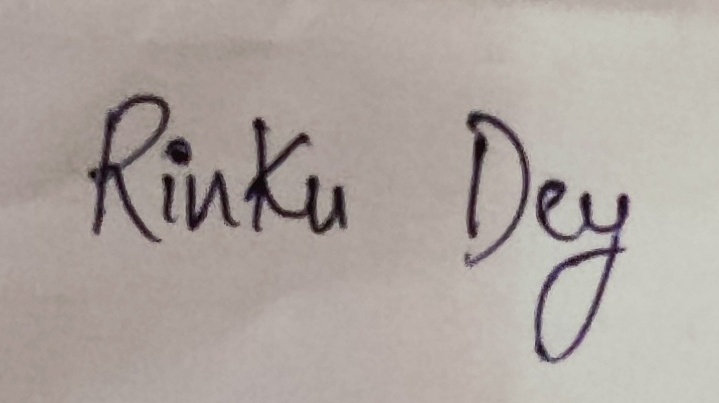 Rinku Dey